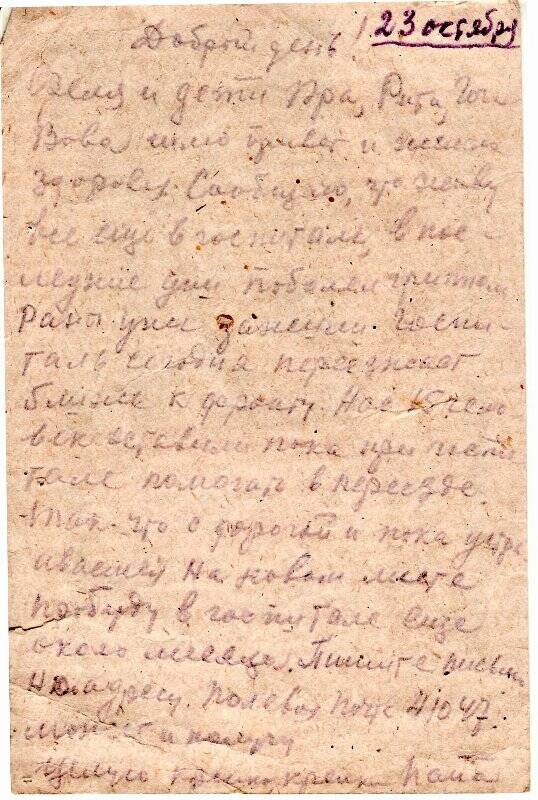 23 октября
Добрый день!
Леля и дети Ира, Рита, Гога
Вова шлю привет и желаю
здоровья. Сообщаю, что живу
все еще в госпитале, в пос-
ледние дни поболел гриппом
Раны уже зажили. Госпи-
таль сегодня переезжает
ближе к фронту. Нас 15 чело
век оставили пока при госпи
тале помогать в переезде.
Так что с дорогой и пока устра
иваемся на новом месте
пробуду в госпитале еще
около месяца. Пишите письма
по адресу. Полевая почт 41047.
может и получу
Целую крепко крепко Папа